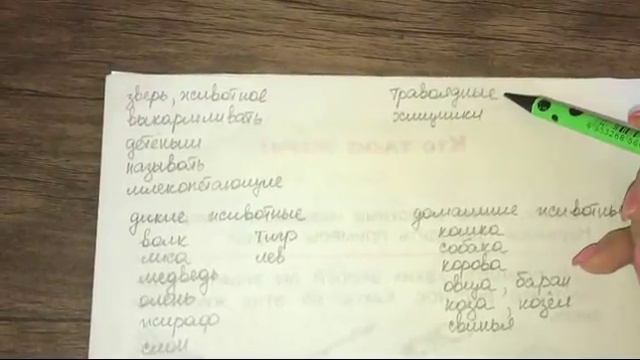 зверь, животное
выкармливать
детёныш
называть
млекопитающие
травоядные
хищники
дикие животные
волк тигр
лиса лев
медведь
олень
жираф
слон
домашние животные
кошка
собака
корова
овца, баран
коза, козёл
свинья